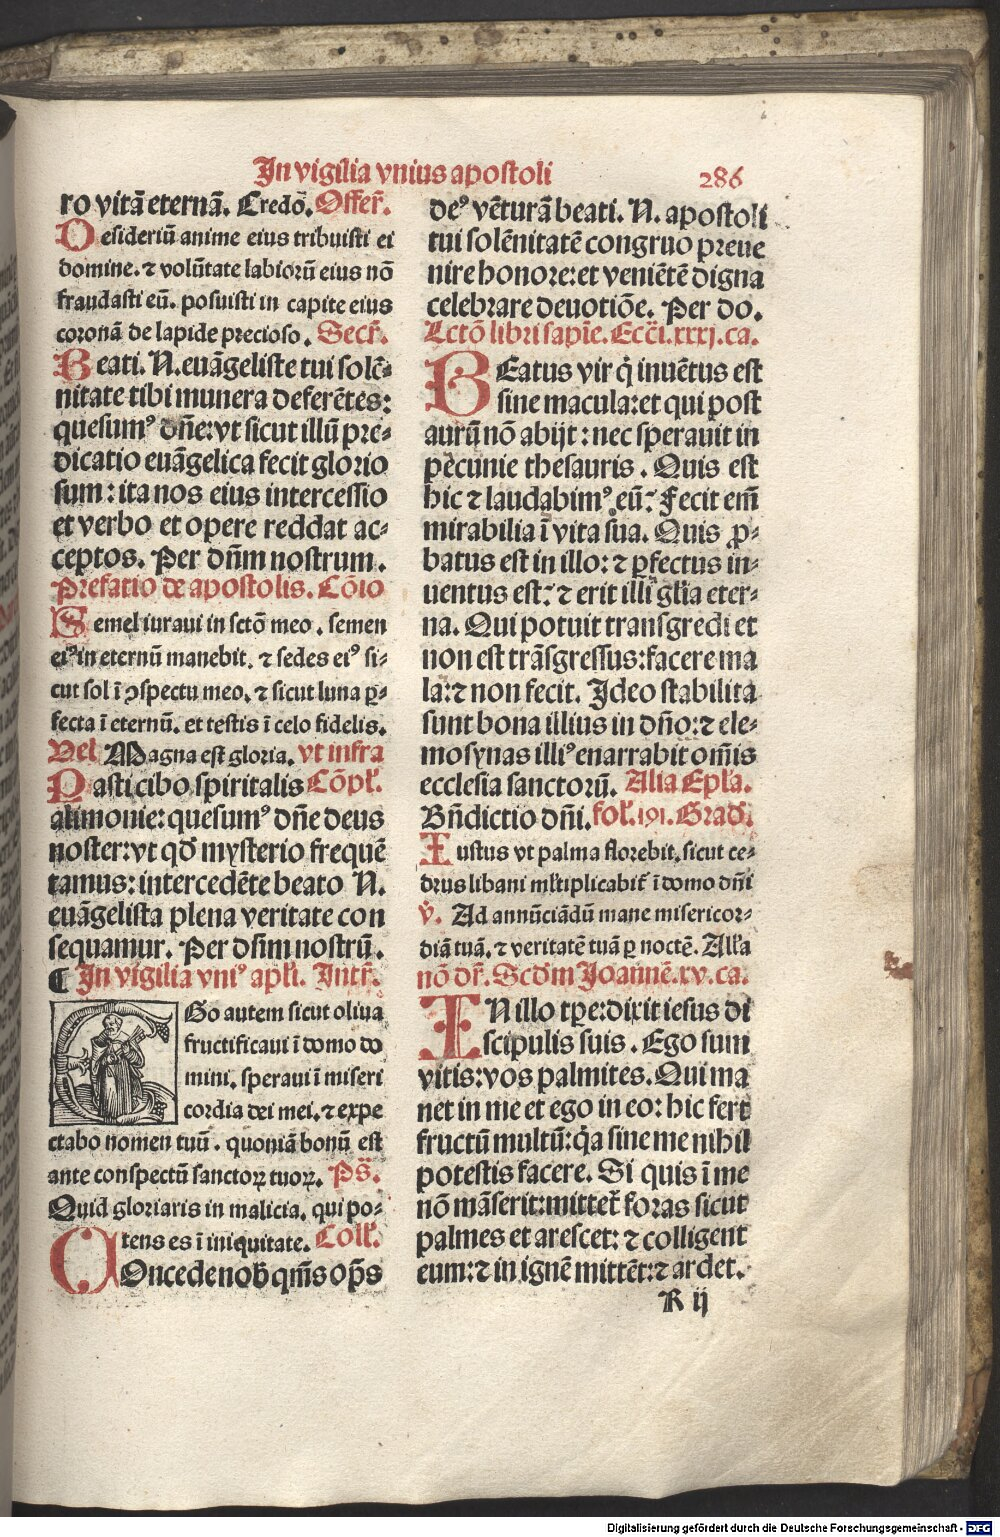 In vigilia vnius apostoli 286
ro vitã eternã. Credõ. Offer̃.
Desideriũ anime eius tribuisti ei
domine. ⁊ volũtate labiorũ eius nõ
fraudasti eũ. posuisti in capite eius
coronã de lapide precioso. Secr̃.
Beati. N. euãgeliste tui solẽ⸗
nitate tibi munera deferẽtes:
quesumꝰ dñe: vt sicut illũ pre⸗
dicatio euãgelica fecit glorio
sum: ita nos eius intercessio
et verbo et opere reddat ac⸗
ceptos. Per dñm nostrum.
Prefatio de apostolis. Cõio
Semel iuraui in sctõ meo. semen
eiꝰ in eternũ manebit. ⁊ sedes eiꝰ si⸗
cut sol ĩ ꝯspectu meo. ⁊ sicut luna ꝑ⸗
fecta ĩ eternũ. et testis ĩ celo fidelis.
Vel Magna est gloria. vt infra
Pasti cibo spiritalis Cõpl̃.
alimonie: quesumꝰ dñe deus
noster: vt qđ mysterio frequẽ
tamus: intercedẽte beato N.
euãgelista plena veritate con
sequamur. Per dñm nostrũ.
¶ In vigilia vniꝰ apl̃i. Intr̃.
EGo autem sicut oliua
fructificaui ĩ domo do
mini. speraui ĩ miseri
cordia dei mei. ⁊ expe
ctabo nomen tuũ. quoniã bonũ est
ante conspectũ sanctoꝝ tuoꝝ. Ps̃.
Quid gloriaris in malicia. qui po⸗
tens es ĩ iniquitate. Coll̃.
COncede nob̃ qm̃s op̃s
deꝰ vẽturã beati. N. apostoli
tui solẽnitatẽ congruo preue
nire honore: et veniẽtẽ digna
celebrare deuotiõe. Per do.
Lctõ libri sapiẽ. Ecc̃i. xxxj. ca.
BEatus vir q̃ inuẽtus est
sine macula: et qui post
aurũ nõ abijt: nec sperauit in
pecunie thesauris. Quis est
hic ⁊ laudabimꝰ eũ: Fecit em̃
mirabilia ĩ vita sua. Quis ꝓ⸗
batus est in illo: ⁊ ꝑfectus in⸗
uentus est: ⁊ erit illi gl̃ia eter⸗
na. Qui potuit transgredi et
non est trãsgressus: facere ma
la: ⁊ non fecit. Ideo stabilita
sunt bona illius in dño: ⁊ ele⸗
mosynas illiꝰ enarrabit om̃is
ecclesia sanctorũ. Alia Epl̃a.
Bñdictio dñi. fol̃. 191. Grad̃.
Iustus vt palma florebit. sicut ce⸗
drus libani ml̃tiplicabit̃ ĩ domo dñi
v̾. Ad annũciãdũ mane misericor⸗
diã tuã. ⁊ veritatẽ tuã ꝑ noctẽ. All̃a
nõ dr̃. Scđm Joannẽ. xv. ca.
IN illo tp̃e: dixit iesus di
scipulis suis. Ego sum
vitis: vos palmites. Qui ma
net in me et ego in eo: hic fert
fructũ multũ: q̃a sine me nihil
potestis facere. Si quis ĩ me
nõ mãserit: mittet̃ foras sicut
palmes et arescet: ⁊ colligent
eum: ⁊ in ignẽ mittẽt: ⁊ ardet.
R ij
Digitalisierung gefördert durch die Deutsche Forschungsgemeinschaft - DFG